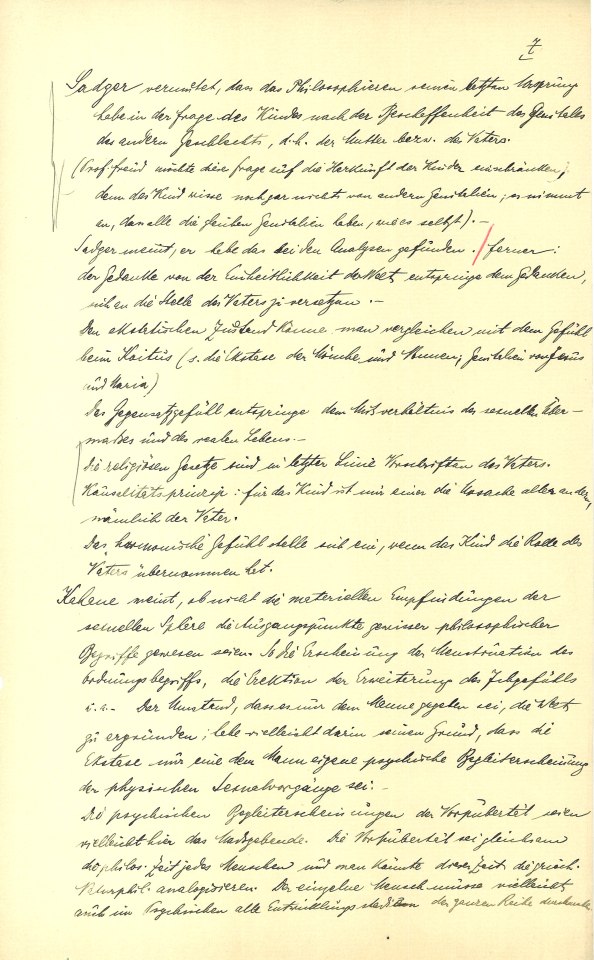 7
Sadger vermutet, dass das Philosophieren seinen letzten Ursprung
habe in der Frage des Kindes nach der Beschaffenheit des Genitales
des andern Geschlechts, d.h. der Mutter bezw. des Vaters.
(Prof. Freud möchte diese Frage auf die Herkunft der Kinder einschränken;
denn das Kind wisse noch gar nichts von andern Genitalien; es nimmt
an, dass alle die gleichen Genitalien haben, wie es selbst). —
Sadger meint, er habe das bei den Analysen gefunden. / ferner:
der Gedanke von der Einheitlichkeit der Welt entspringe dem Gedanken,
sich an die Stelle des Vaters zu versetzen. —
Den ekstatischen Zustand könne man vergleichen mit dem Gefühl
beim Koitus (s. die Ekstase der Mönche und Nonnen; Genitalien von Jesus
und Maria)
Das Gegensatzgefühl entspringe dem Missverhältnis des sexuellen Über-
masses und des realen Lebens. —
Die religiösen Gesetze sind in letzter Linie Vorschriften des Vaters.
Kausalitätsprinzip: für das Kind ist nur einer die Ursache aller andern,
nämlich der Vater.
Das harmonische Gefühl stelle sich ein, wenn das Kind die Rolle des
Vaters übernommen hat.
Kahane meint, ob nicht die materiellen Empfindungen der
sexuellen Sphäre die Ausgangspunkte gewisser philosophischer
Begriffe gewesen seien. So die Erscheinung der Menstruation des
Ordnungsbegriffs, die Erektion der Erweiterung des Ichgefühls
Der Umstand, dass es nur dem Manne gegeben sei, die Welt
zu ergründen; habe vielleicht darin seinen Grund, dass die
Ekstase nur eine dem Mann eigene psychische Begleiterscheinung
der physischen Sexualvorgänge sei. —
Die psychischen Begleiterscheinungen der Vorpubertät seien
vielleicht hier das Massgebende. Die Vorpubertät sei gleichsam
die philos. Zeit jedes Menschen und man könnte diese Zeit die griech.
Naturphil. analogisieren. Der einzelne Mensch müsse vielleicht
auch im Psychischen alle Entwicklungsstadien der ganzen Reihe